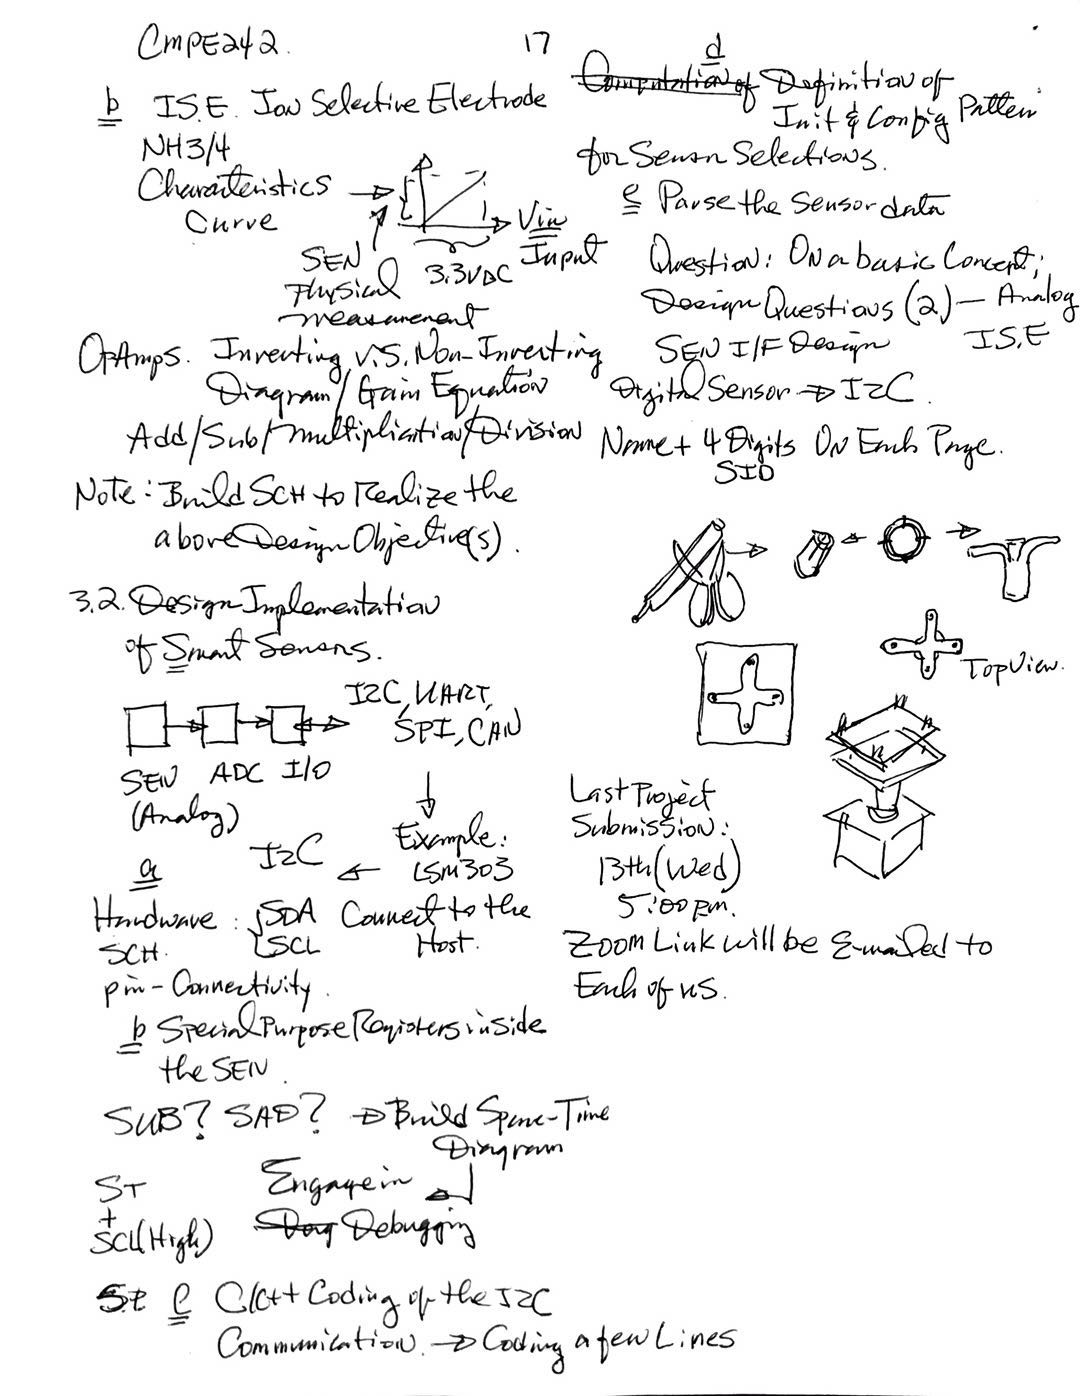 CMPE242.
17
b I.S.E. Ion Selective Electrode
NH3/4
Characteristics
Curve
Vin
Input
SEN
Physical
measurement
3.3VDC
OPAmps. Inverting V.S. Non-Inverting
Diagram/Gain Equation
Add/Sub/multiplication/Division
Note: Build SCH to Realize the
above Design Objective(s).
3.2. Design Implementation
of Smart Sensors.
I2C, UART,
SPI, CAN
SEN ADC I/O
(Analog)
Example:
LSM303
I2C
a
Hardware: SDA Connect to the
SCH. SCL Host.
pin-Connectivity.
b Special Purpose Registers inside
the SEN.
SUB? SAD? Build Space-Time
Diagram
ST Engage in
+
SCL(High) Debugging
C C/C++ Coding of the I2C
Communication. Coding a few Lines
d
Computation of Definition of
Init & Config Pattern
for Sensor Selections.
e Parse the Sensor data
Question: On a basic Concept;
Design Questions (2) - Analog
SEN I/F Design I.S.E
Digital Sensor I2C.
Name + 4 Digits On Each Page.
SID
Top View.
Last Project
Submission:
13th (Wed)
5:00pm.
Zoom Link will be E-mailed to
Each of us.